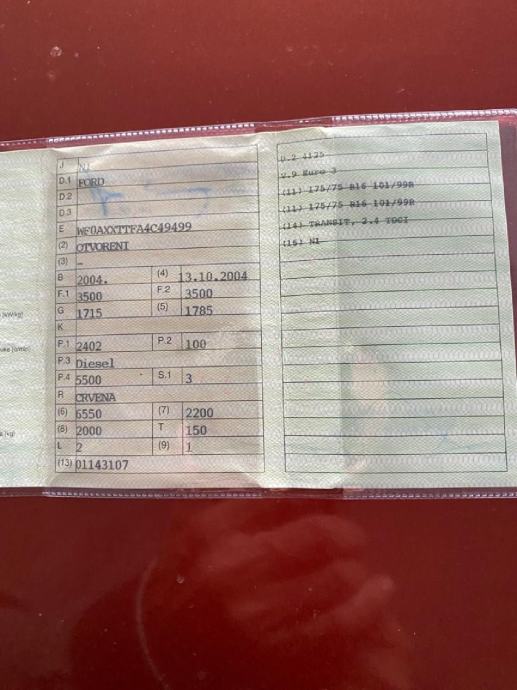 J N1
D.1 FORD
D.2
D.3
E WF0AXXTTFA4C49499
(2) OTVORENI
(3) -
B 2004. (4) 13.10.2004
F.1 3500 F.2 3500
G 1715 (5) 1785
K
P.1 2402 P.2 100
P.3 Diesel
P.4 5500 S.1 3
R CRVENA
(6) 6550 (7) 2200
(8) 2000 T 150
L 2 (9) 1
(13) 01143107
V.9 Euro 3
(11) 175/75 R16 101/99R
(11) 175/75 R16 101/99R
(14) TRANSIT, 2.4 TDCI
(15) N1